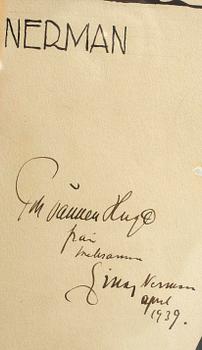 NERMAN
Till vännen Hugo
från
Einar Nerman
april
1939.